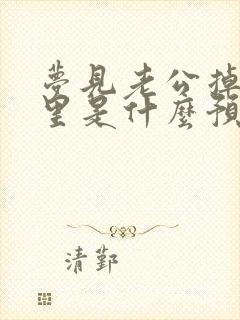 夢見老公掉
里是什麼預
清鄞